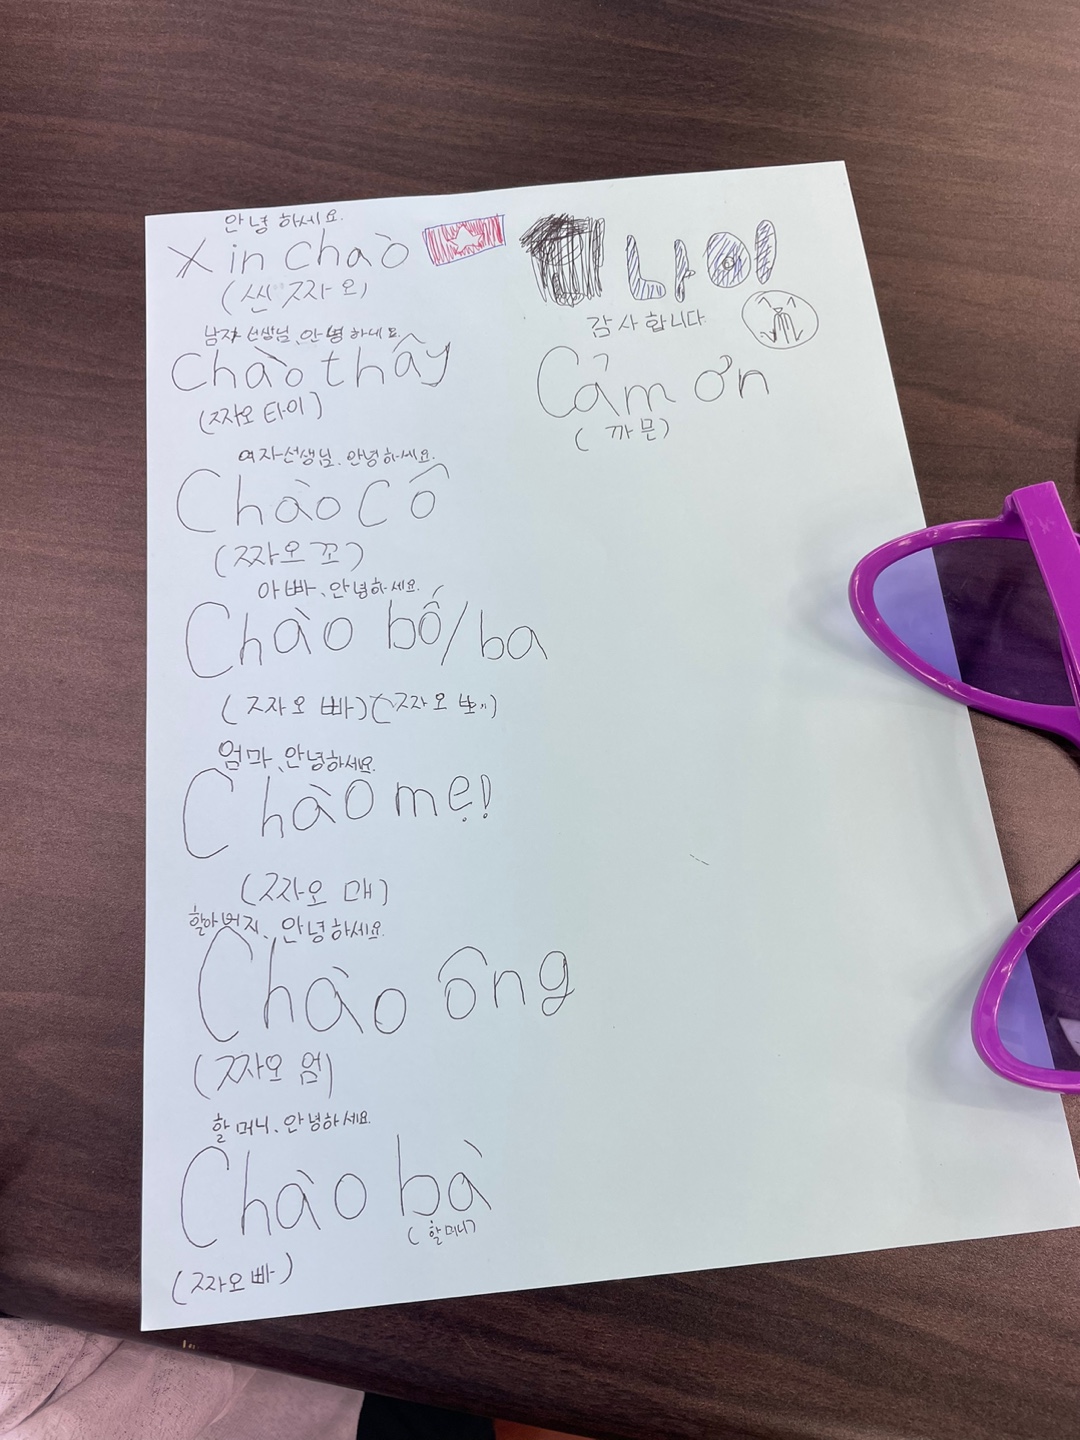 안녕하세요.
Xin chaò
(씬 짜오)
남자선생님, 안녕하세요.
chào thây
(짜오 타이)
여자선생님, 안녕하세요.
Chào cô
(짜오 꼬)
아빠, 안녕하세요.
Chào bố/ba
(짜오 빠)(짜오
엄마, 안녕하세요.
Chào mẹ!
(짜오 매)
할아버지, 안녕하세요.
Chào ông
(짜오 엄)
할머니, 안녕하세요.
Chào bà
(할머니)
(짜오 빠)
나이
감사합니다.
Cảm ơn
(까믄)